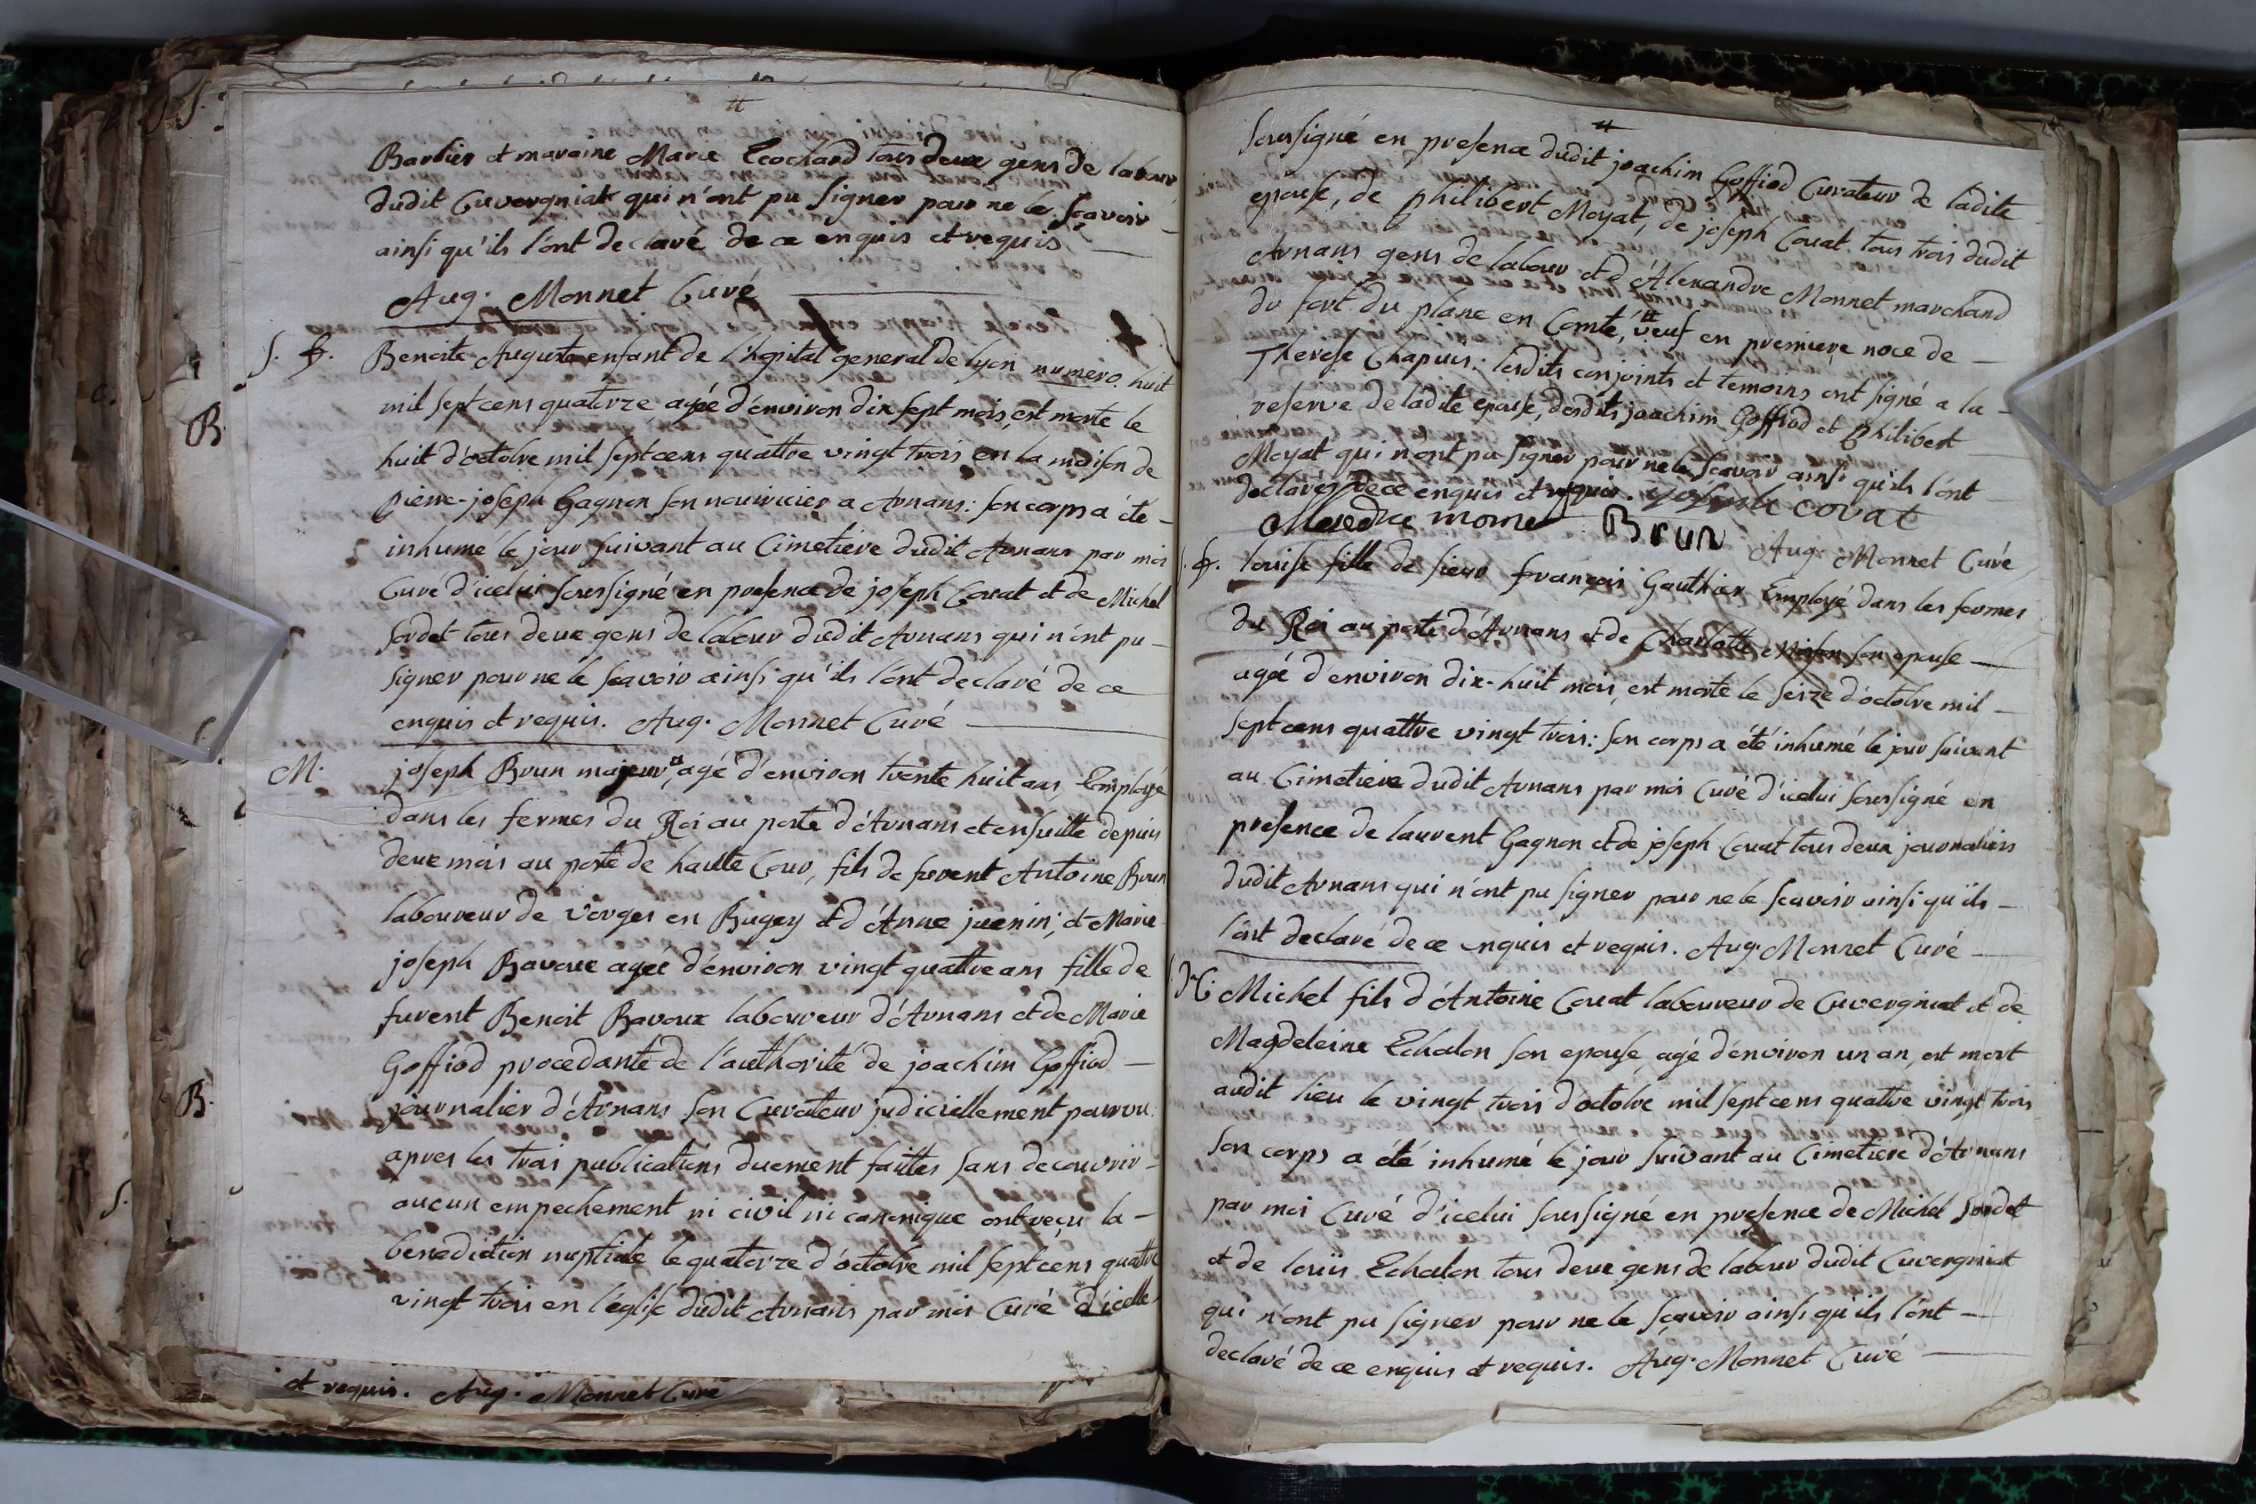 Barbier et maraine Marie Ecochard tous deux gens de labour
dudit Cuvergniat qui n'ont pu signer pour ne le sçavoir
ainsi qu'ils l'ont declaré de ce enquis et requis
Aug. Monnet Curé
S. f. Benoite Auguste enfant de l'hopital general de lyon numero huit
mil sept cens quatorze agée d'environ dix sept mois, est morte le
huit d'octobre mil sept cens quattre vingt trois en la maison de
pierre-joseph Gagnon son nourricier a Arnans: son corps a été
inhumé le jour suivant au Cimetiere dudit Arnans par moi
Curé d'icelui soussigné en presence de joseph Couat et de Michel
Sordet tous deux gens de labour dudit Arnans qui n'ont pu
signer pour ne le sçavoir ainsi qu'ils l'ont déclaré de ce
enquis et requis. Aug. Monnet Curé
M. joseph Brun majeur, agé d'environ trente huit ans, Employé
dans les fermes du Roi au poste d'Arnans et ensuitte depuis
deux mois au poste de haulte Cour, fils de furent Antoine Brun
laboureur de Vorges en Bugey et d'Anne juenin; et Marie
joseph Bavoux agée d'environ vingt quattre ans fille de
furent Benoit Bavoux laboureur d'Arnans et de Marie
Goffiod procedante de l'authorité de joachim Goffiod
journalier d'Arnans son Curateur judiciellement pourvu
apres les trois publications duement faittes sans decouvrir
aucun empechement ni civil ni canonique ont reçu la
benediction nuptiale le quatorze d'octobre mil sept cens quattre
vingt trois en l'église dudit Arnans par moi Curé d'icelle
et requis. Aug. Monnet Curé
soussigné en presence dudit joachim Goffiod Curateur de ladite
epouse, de philibert Moyat, de joseph Couat tous trois dudit
Arnans gens de labour et d'Alexandre Monnet marchand
du fort du plane en Comté, veuf en premiere noce de
Therese Chapuis: lesdits conjoints et temoins ont signé a la
reserve de ladite epouse, desdits joachim Goffiod et Philibert
Moyat qui n'ont pu signer pour ne le sçavoir ainsi qu'ils l'ont
declaré de ce enquis et requis. joseph covat
monet Brun Aug. Monnet Curé
f. louise fille de sieur françois Gauthier Employé dans les fermes
du Roi au poste d'Arnans et de Charlotte son epouse
agée d'environ dix-huit mois, est morte le seize d'octobre mil
sept cens quattre vingt trois: son corps a été inhumé le jour suivant
au Cimetiere dudit Arnans par moi Curé d'icelui soussigné en
presence de laurent Gagnon et de joseph Couat tous deux journaliers
dudit Arnans qui n'ont pu signer pour ne le sçavoir ainsi qu'ils
l'ont declaré de ce enquis et requis. Aug. Monnet Curé
Michel fils d'Antoine Couat laboureur de Cuvergniat et de
Magdeleine Echalon son epouse, agé d'environ un an, est mort
audit lieu le vingt trois d'octobre mil sept cens quatre vingt trois
son corps a été inhumé le jour suivant au Cimetiere d'Arnans
par moi Curé d'icelui soussigné en presence de Michel Sordet
et de louis Echalon tous deux gens de labour dudit Cuvergniat
qui n'ont pu signer pour ne le sçavoir ainsi qu'ils l'ont
declaré de ce enquis et requis. Aug. Monnet Curé